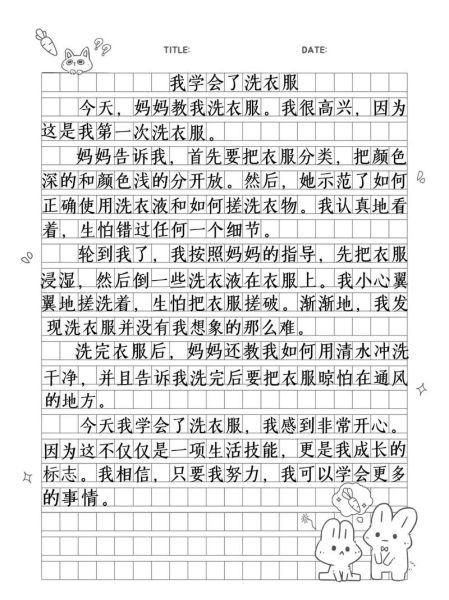 TITLE: DATE:
我学会了洗衣服
今天，妈妈教我洗衣服。我很高兴，因为
这是我第一次洗衣服。
妈妈告诉我，首先要把衣服分类，把颜色
深的和颜色浅的分开放。然后，她示范了如何
正确使用洗衣液和如何搓洗衣物。我认真地看
着，生怕错过任何一个细节。
轮到我了，我按照妈妈的指导，先把衣服
浸湿，然后倒一些洗衣液在衣服上。我小心翼
翼地搓洗着，生怕把衣服搓破。渐渐地，我发
现洗衣服并没有我想象的那么难。
洗完衣服后，妈妈还教我如何用清水冲洗
干净，并且告诉我洗完后要把衣服晾怕在通风
的地方。
今天我学会了洗衣服，我感到非常开心。
因为这不仅仅是一项生活技能，更是我成长的
标志。我相信，只要我努力，我可以学会更多
的事情。